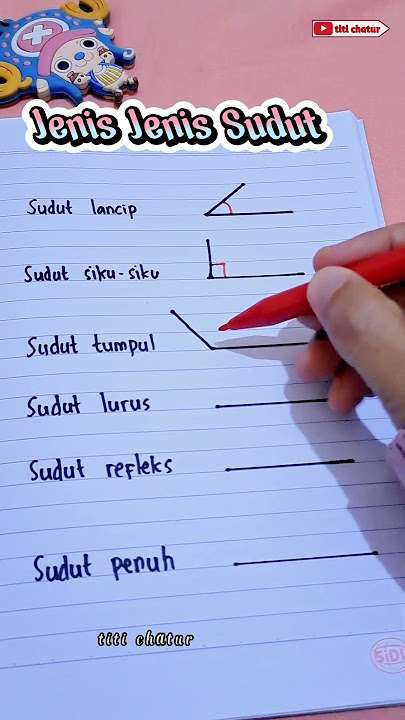 titi chatur
Jenis Jenis Sudut
Sudut lancip
Sudut siku-siku
Sudut tumpul
Sudut lurus
Sudut refleks
Sudut penuh
titi chatur
SiDU